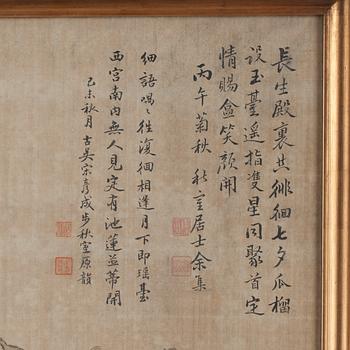 長生殿裏共徘徊七夕瓜榴
設玉臺遙指雙星同聚首定
情賜盒笑顏開
丙午菊秋 秋室居士余集
細語喁喁往復徊相逢月下即瑶臺
西宮南内無人見定有池蓮並蒂開
己未秋月古吴宗彦成步秋室原韻